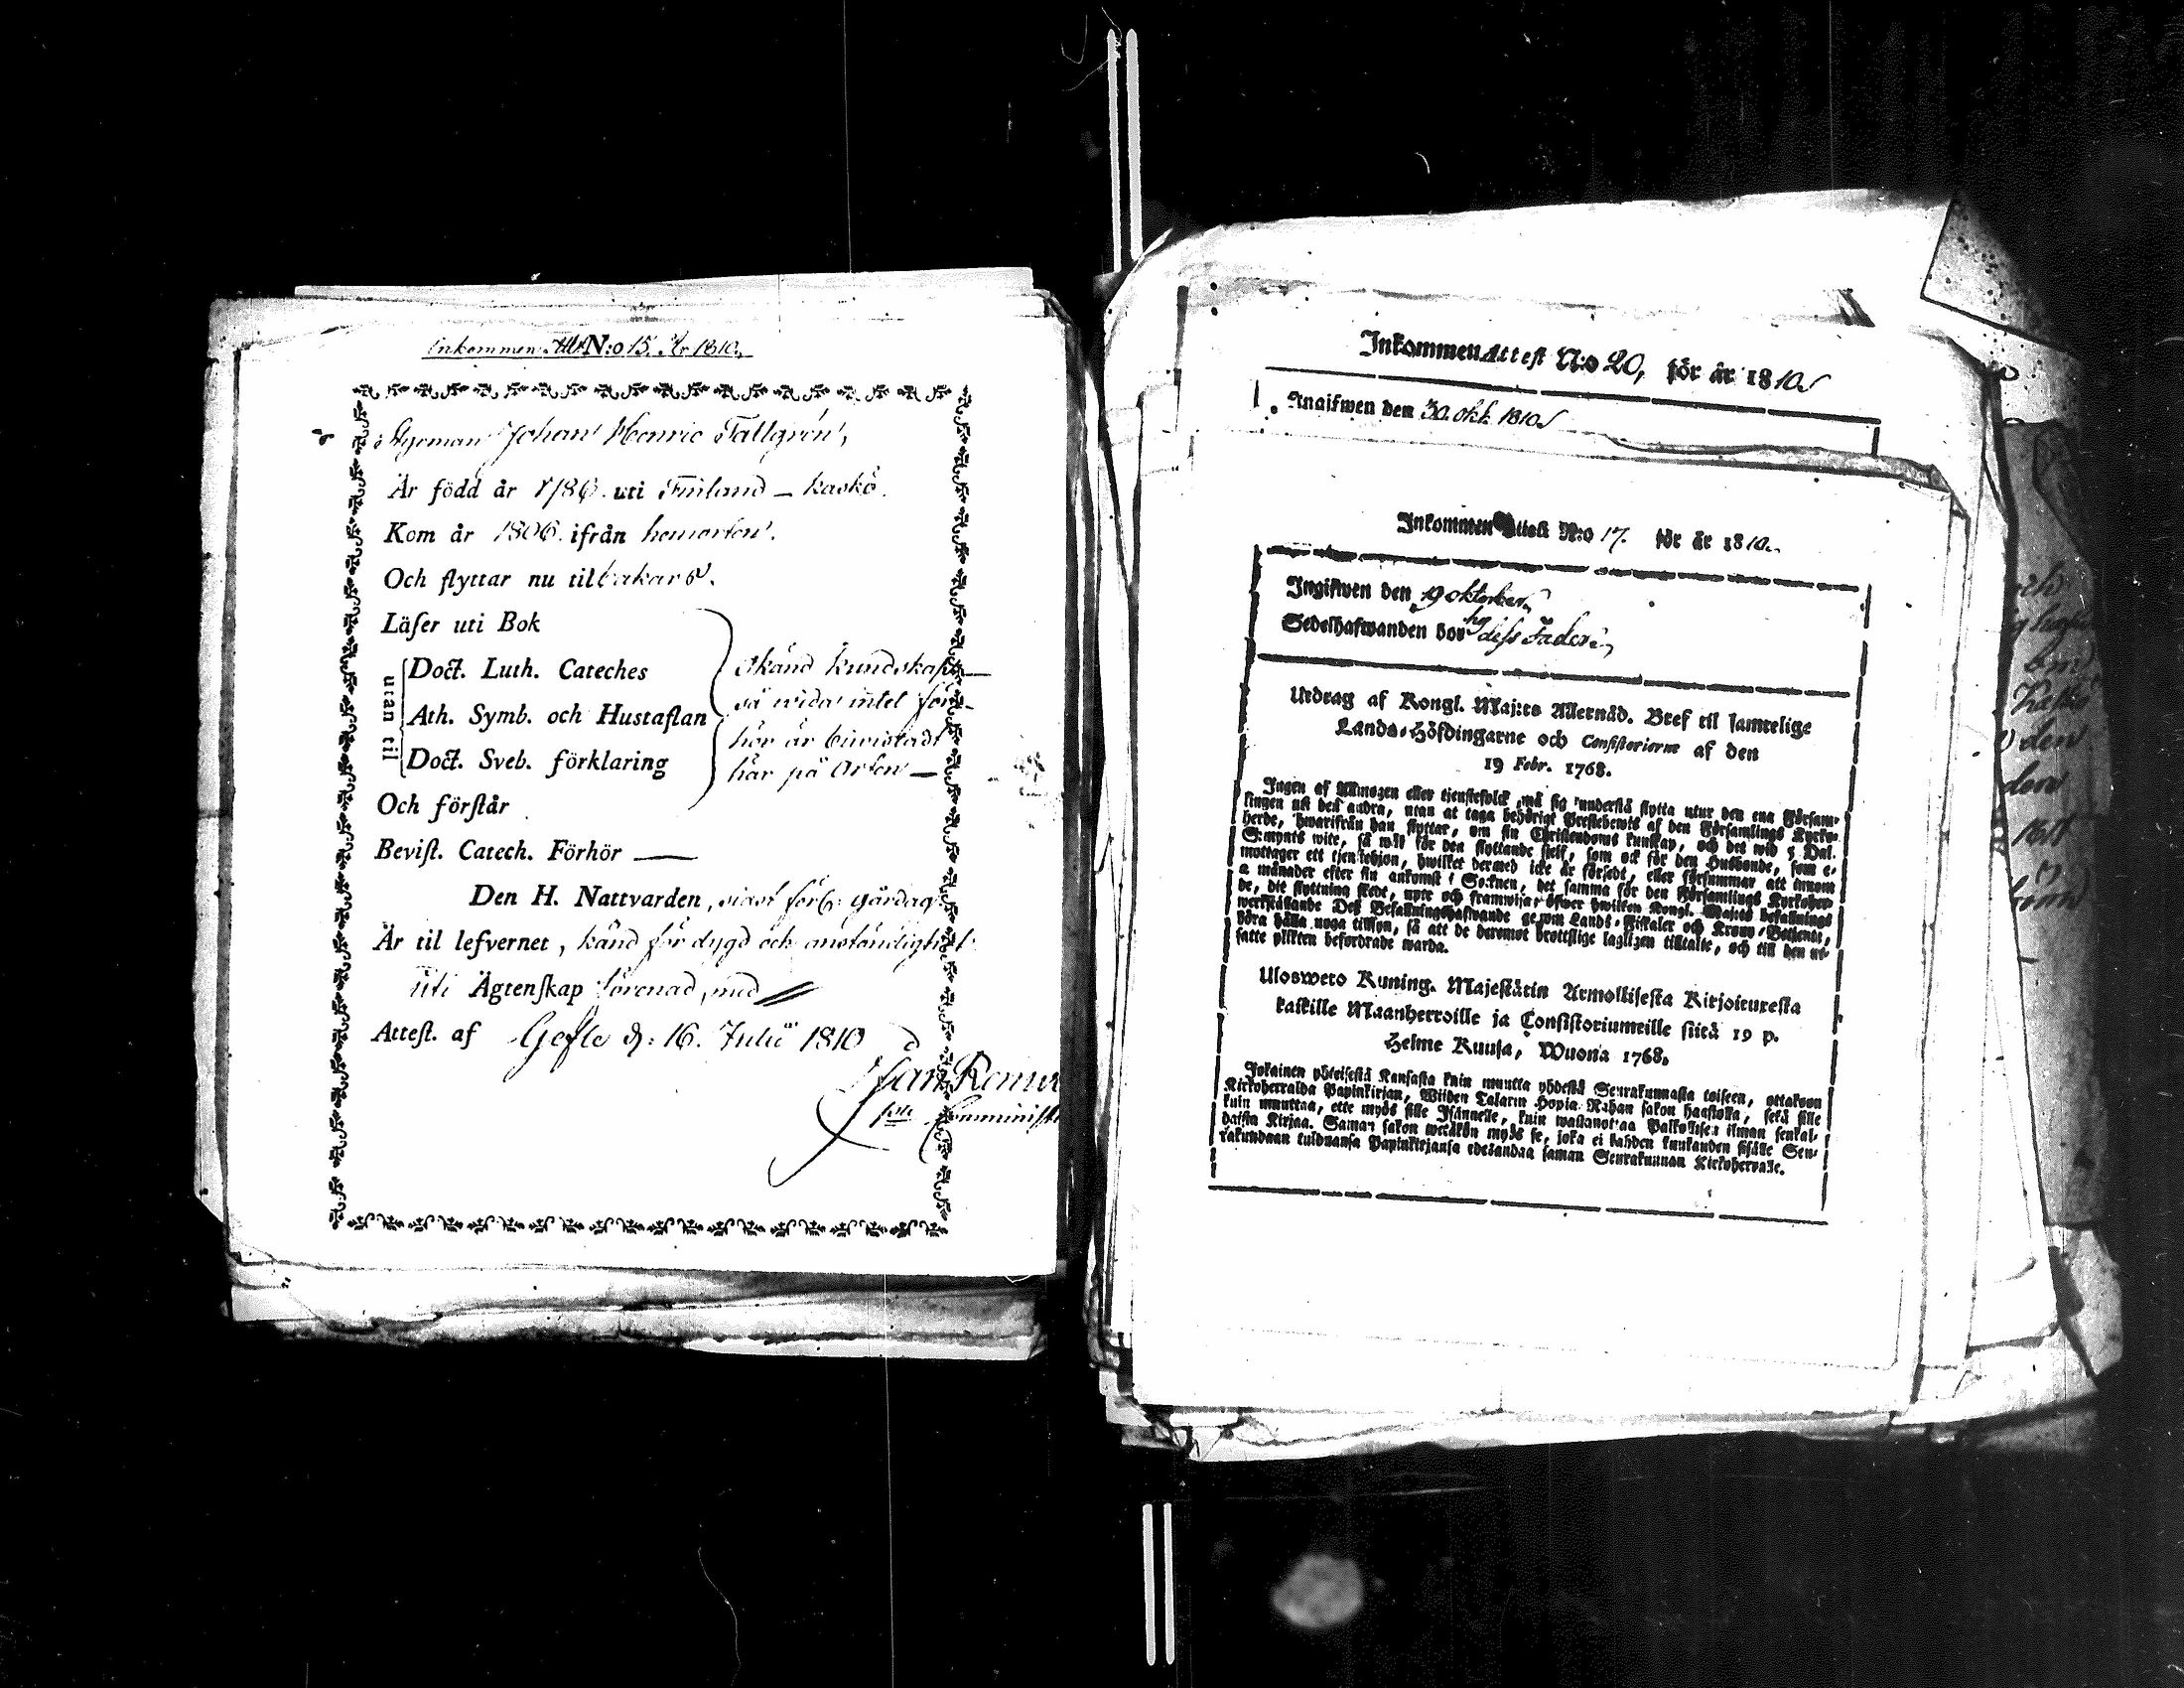 Inkommen Att. N:o 15. År 1810.
Styrman Johan Henric Tallgrén,
Är född år 1786. uti Finland - Kaskö.
Kom år 1806. ifrån hemorten.
Och flyttar nu til bakars.
Läser uti Bok
utan til
Doct. Luth. Cateches
Ath. Symb. och Hustaflan
Doct. Sveb. förklaring
okänd kundskap
så vida intet för-
hör är
här på Orten
Och förstår
Bevist. Catech. Förhör
Den H. Nattvarden, sidst gårdag
Är til lefvernet, känd för dygd och anständighet
uti Ägtenskap förenad, med
Attest. af Gefle d: 16. Julii 1810
InkommenAttest N:o 20, för år 1810.
Angifwen den 30. okt. 1810.
Inkommen Attest N:o 17. för år 1810.
Ingifwen den 19 oktober
Sedelhafwanden bor hos dess Fader
Utdrag af Kongl. Maj:ts Allernåd. Bref til samtelige
Lands-Höfdingarne och Consistorierne af den
19 Febr. 1768.
Ingen af Allmogen eller tjenstefolck må sig understå flytta utur den ena Försam-
lingen uti den andra, utan at taga behörigt Prestebewis af den Församlings Kyrko-
herde, hwarifrån han flyttar, om sin Christendoms kunskap, och det wid 5 Dal.
S:mynts wite, så wäl för den flyttande sielf, som ock för den Husbonde, som e-
mottager ett tjenstehjon, hwilket dermed icke är försedt, eller försummar att innom
2 månader efter sin ankomst i Socknen, det samma för den Församlings Kyrkoher-
de, dit flyttning skedt, upte och framwisa; öfwer hwilken Kongl. Maj:ts befallnings
werkställande Des Befallningshafwande genom Lands-Fiskaler och Krono-Betjente,
böra hålla noga tillsyn, så att de deremot brottslige lagligen tilltalte, och till den ut-
satte plikten befordrade warda.
Uloswero Kuning. Majestätin Armollisesta Kirjoituxesta
kaikille Maanherroille ja Consistoriumeille siitä 19 p.
Helme Kuusa, Wuona 1768.
Jokainen yhteisestä Kansasta kuin muutta yhdestä Seurakunnasta toiseen, ottakoon
Kirkoherralda Papinkirjan, Wiiden Talarin Hopia Rahan sakon haastolla, sekä sille
kuin muuttaa, ette myös sille Isännelle, kuin wastanottaa Palkollisen ilman senkal-
daista Kirjaa. Saman sakon wetäkön myös se, joka ei kahden kuukauden sisälle Seu-
rakundaan tulduansa Papinkirjansa edesandaa saman Seurakunnan Kirkoherralle.